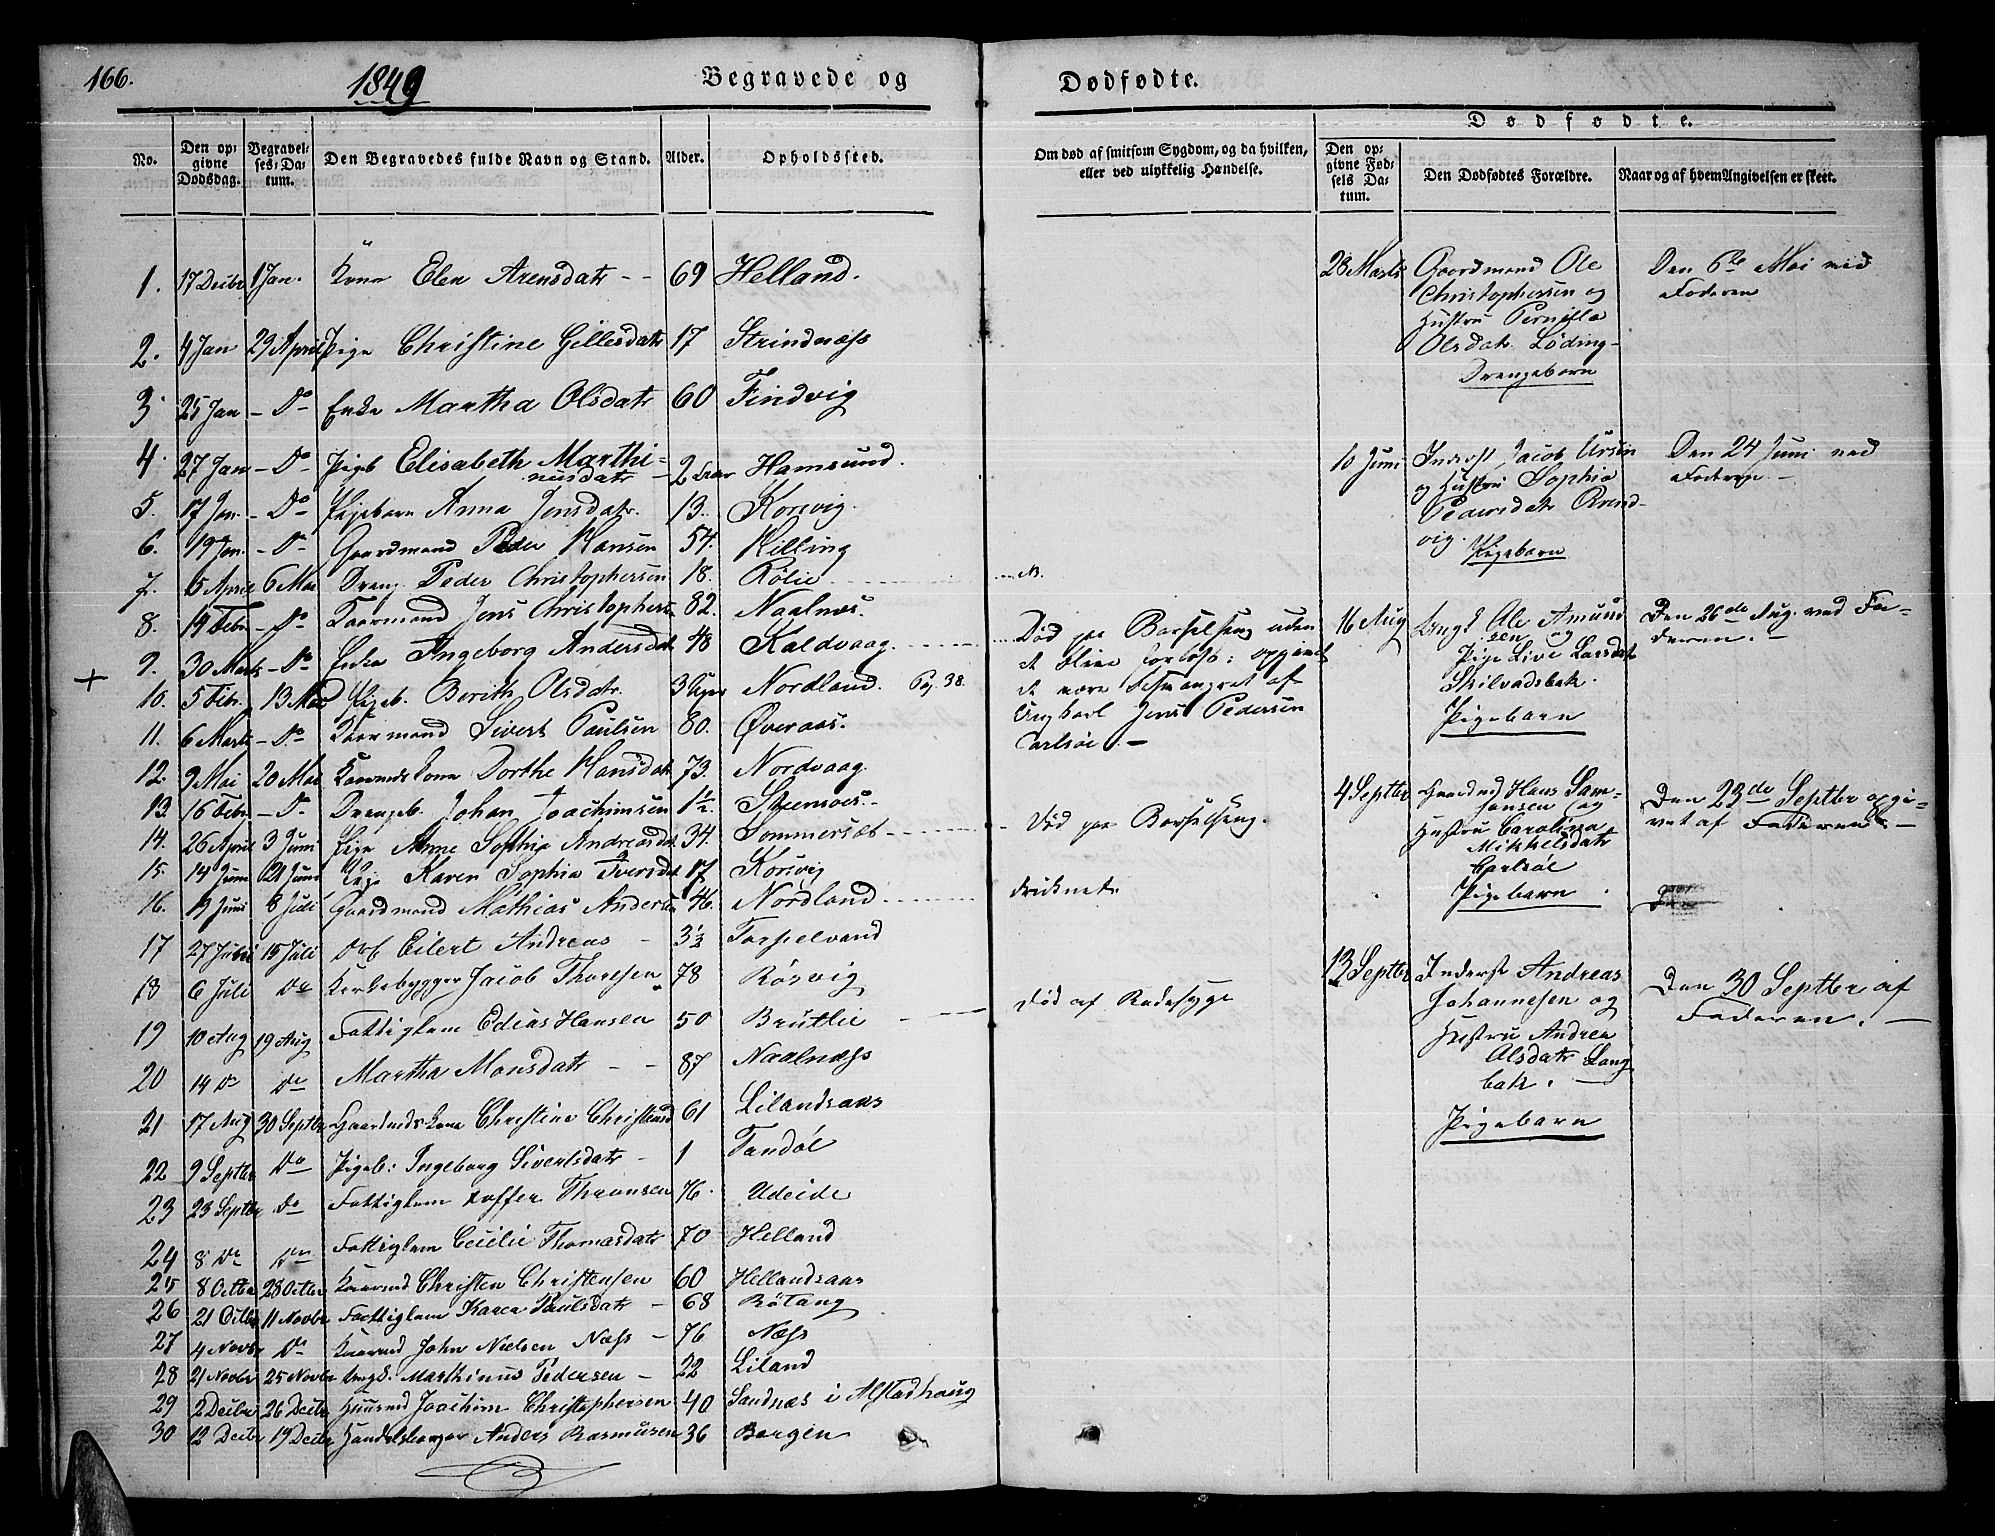 166.
1849
Begravede og
Dødfødte.
No.
Den opgivne Dødsdag.
Begravelses-Datum.
Den Begravedes fulde Navn og Stand.
Alder.
Opholdssted.
Om død af smitsom Sygdom, og da hvilken, eller ved ulykkelig Hændelse.
Dødfødte.
Den opgivne Fødsels Datum.
Den Dødfødtes Forældre.
Naar og af hvem Angivelsen er skeet.
1. 17 Decbr 1 Jan. Kone Elen Arensdatr - - 69 Helland.
2. 4 Jan 29 April Pige Christine Gillesdatr 17 Strindnæss
3. 25 Jan - Do Enke Martha Olsdatr 60 Findvig
4. 27 Jan - Do Pigeb Elisabeth Marthi-
nusdatr - 2 Hamsund.
5. 17 Jan - Do Pigebarn Anna Jensdatr. 13. Korsvig.
6. 19 Jan - Do Gaardmand Peder Hansen 54. Killing
7. 5 April 6 Mai Dreng Peder Christophersen 18. Rølie
8. 14 Febr - Do Kaarmand Jens Christophersn 82. Naalnæs.
9. 30 Marts - Do Enke Ingeborg Andersdat 48 Kaldvaag.
+ 10. 5 Febr. 13 Mai Pigeb. Berith Olsdatr. 3 Uger Nordland. Pag. 38.
11. 6 Marts - Do Kaarmand Sivert Paulsen 80. Øveraas.
12. 9 Mai 20 Mai Kaarmds kone Dorthe Hansdatr 73. Nordvaag.
13. 16 Febr. - Do Drengeb. Johan Joachimsen 1½ Steensoes.
14. 26 April 3 Juni Pige Anne Sophia Andreasdt 34. Sommersæt
15. 14 Juni 21 Juni Pige Karen Sophia Iversdt 17 Korsvig
16. 19 Juni 8 Juli Gaardmand Mathias Andersen 46. Nordland
17 27 Juni 15 Juli Eilert Andreas - 3½ Torpelvand
18 6 Juli Do Kirkebygger Jacob Thoresen 78 Røsvig
19 10 Aug 19 Aug Fattiglem Edias Hansen 50 Brutlie
20 14 Do Do Martha Monsdatr - - 87 Naalnæss
21 17 Aug 30 Septbr Gaardmds kone Christine Christensd 61 Lilandsaas
22 9 Septbr Do Pigeb: Ingeborg Sivertsdatr - 1 Tandøl
23 23 Septbr Do Fattiglem Toffer Thronsen 76. Udeide
24 8 Do Do Fattiglem Cecilie Thomasdatr 70 Helland
25 8 Octbr 28 Octbr Kaarmd Christen Christensen 60 Hellandsaas
26 21 Octbr 11 Novbr Fattiglem Karen Paulsdatr - 68 Røtang
27 4 Novbr Do Kaarmd John Nielsen Næss - 76 Næss
28 21 Novbr 25 Novbr Ungk. Marthinus Pedersen - 22 Liland
29 2 Decbr 26 Decbr Huusmd Joachim Christophersen 40 Sandnæs i Alstadhaug
30 12 Decbr 19 Decbr Handelsborger Anders Rasmusen 36 Bergen
Død paa Barselseng uden
at blive forløst; opgivet
at være besvangret af
Ungkarl Jens Pedersen
Carlsøe. -
Død paa Barselseng.
druknet
død af Radesyge
28 Marts Gaardmand Ole
Christophersen og
Hustru Pernilla
Olsdatr. Løding-
Drengebarn
Den 6te Mai ved
Faderen
10 Juni Inderst Jacob Ursin
og Hustru Sophia
Pedersdatr
vig. Pigebarn
Den 24 Juni ved
Faderen. -
16 Aug Ungk Ole Amund
sen og
Pige Live Larsdatr
Skilvadsbak.
Pigebarn
Den 26de Aug. ved Fa-
deren. -
4 Septbr Gaardmd Hans Sam-
og
Hustru Carolina
Mikkelsdatr
Carlsøl
Pigebarn.
Den 23de Septbr opgi-
vet af Faderen -
13 Septbr Inderst Andreas
Johannesen og
Hustru Andrea
Olsdatr Lang
bak. -
Pigebarn
Den 30 Septbr af
Faderen. -